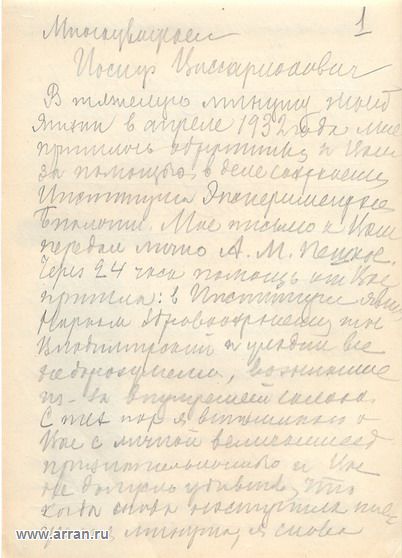 1
Многоуважаем
Иосиф Виссарионович
В тяжелую минуту моей
жизни в апреле 1932 года мне
пришлось обратиться к Вам
за помощью, в деле сохранения
Института Эксперимент.
Биологии. Мое письмо к Вам
передал лично А. М.
Через 24 часа помощь от Вас
пришла: в Институт
Нарком Здравоохранения тов
Владимирский и уладил все
недоразумения, возникшие
из-за
С тех пор я вспоминаю о
Вас с личной величайшей
признательностью и Вас
не должно удивить, что
когда снова наступила
минута, я снова
www.arran.ru